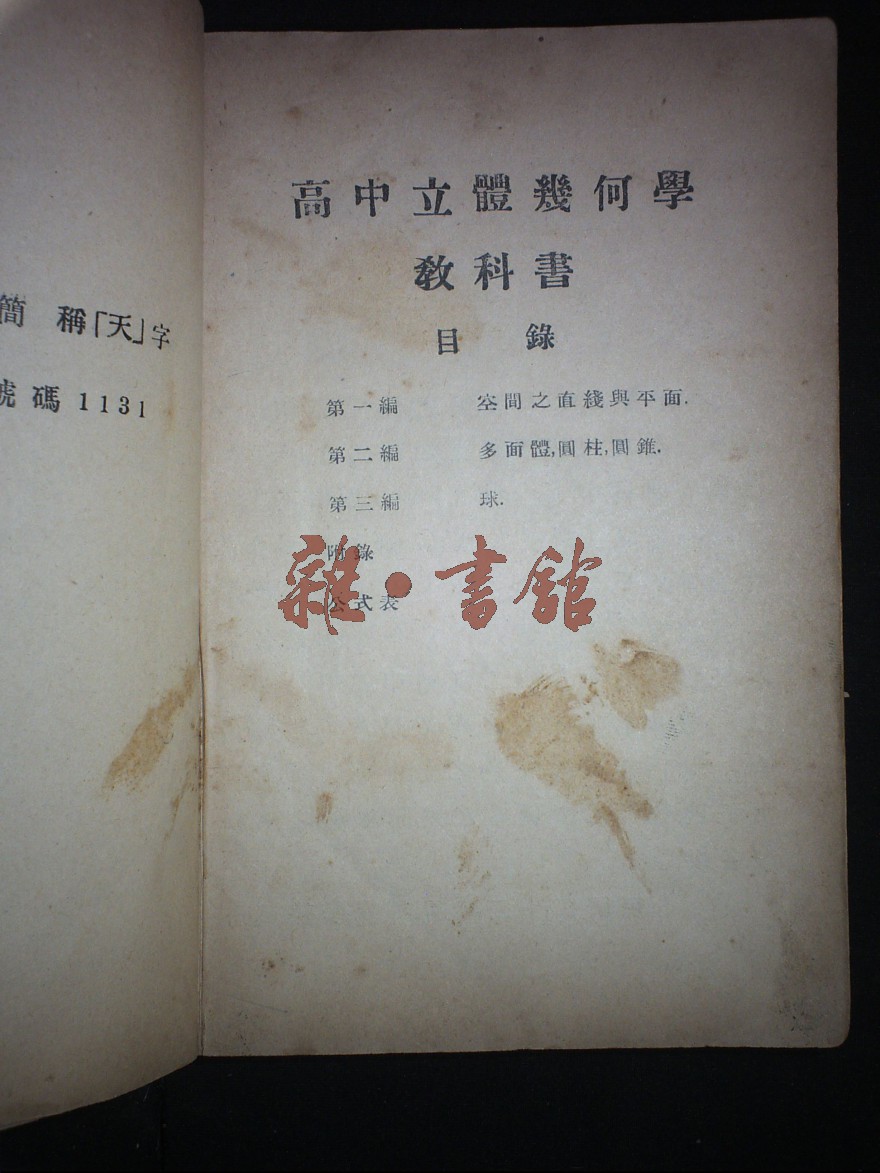 簡稱「天」字
號碼1131
高中立體幾何學
教科書
目錄
第一編 空間之直綫與平面.
第二編 多面體,圓柱,圓錐.
第三編 球.
附錄
公式表
雜·書館